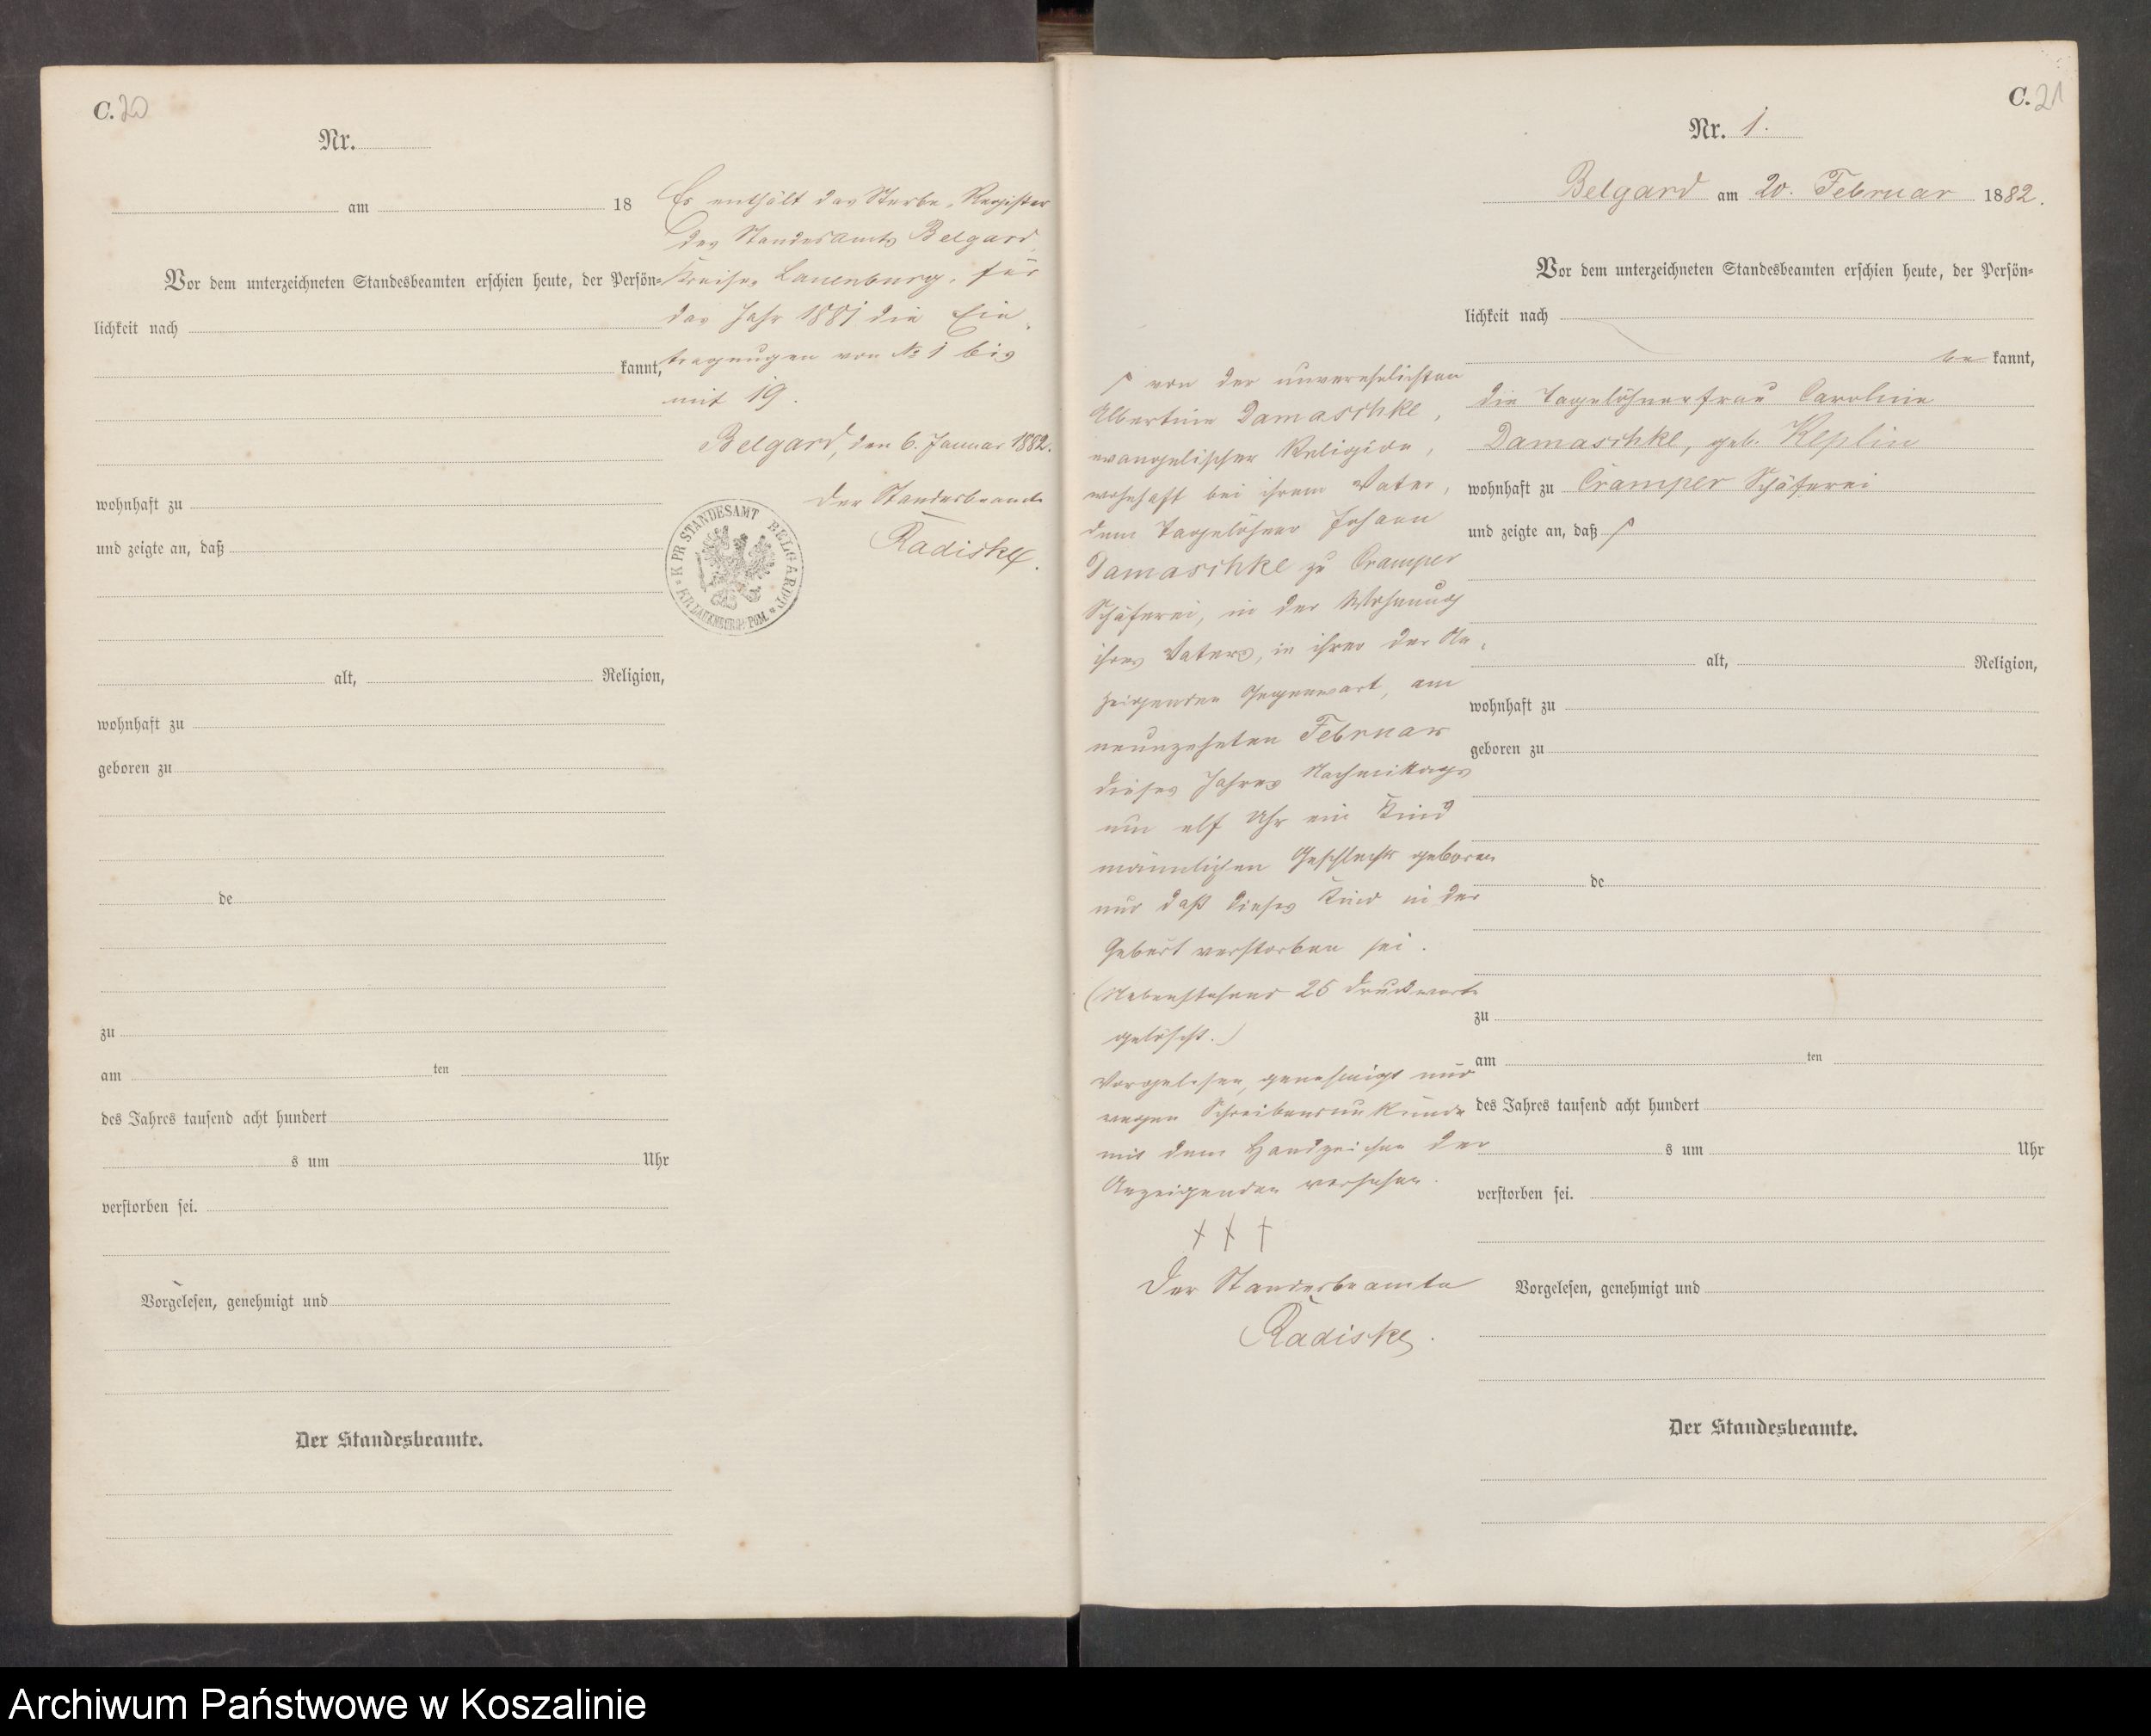 C. 20
Nr.
am 18
Vor dem unterzeichneten Standesbeamten erschien heute, der Persön-
lichkeit nach
kannt,
wohnhaft zu
und zeigte an, daß
alt, Religion,
wohnhaft zu
geboren zu
de
zu
am ten
des Jahres tausend acht hundert
s um Uhr
verstorben sei.
Vorgelesen, genehmigt und
Der Standesbeamte.
Es enthält das Sterbe-Register
des Standesamts Belgard
Kreises Lauenburg, für
das Jahr 1881 die Ein-
tragungen von No 1 bis
mit 19.
Belgard, den 6. Januar 1882.
Der Standesbeamte
Radiske.
K PR STANDESAMT BELGARD P. KR. LAUENBURG I/ POM.
C. 21
Nr. 1.
Belgard am 20. Februar 1882.
Vor dem unterzeichneten Standesbeamten erschien heute, der Persön-
lichkeit nach
be kannt,
die Tagelöhnerfrau Caroline
Damaschke, geb. Keplin
wohnhaft zu Cramper Schäferei
und zeigte an, daß
alt, Religion,
wohnhaft zu
geboren zu
de
zu
am ten
des Jahres tausend acht hundert
s um Uhr
verstorben sei.
Vorgelesen, genehmigt und
Der Standesbeamte.
von der unverehelichten
Albertine Damaschke,
evangelischer Religion,
wohnhaft bei ihrem Vater,
dem Tagelöhner Johann
Damaschke zu Cramper
Schäferei, in der Wohnung
ihres Vaters, in ihrer der An-
zeigenden Gegenwart, am
neunzehnten Februar
dieses Jahres Nachmittags
um elf Uhr ein Kind
männlichen Geschlechts geboren
und daß dieses Kind in der
Geburt verstorben sei.
(Nebenstehend 25 Druckworte
gelöscht.)
Vorgelesen, genehmigt und
wegen Schreibensunkunde
mit dem Handzeichen der
Anzeigenden versehen.
† † †
Der Standesbeamte
Radiske.
Archiwum Państwowe w Koszalinie